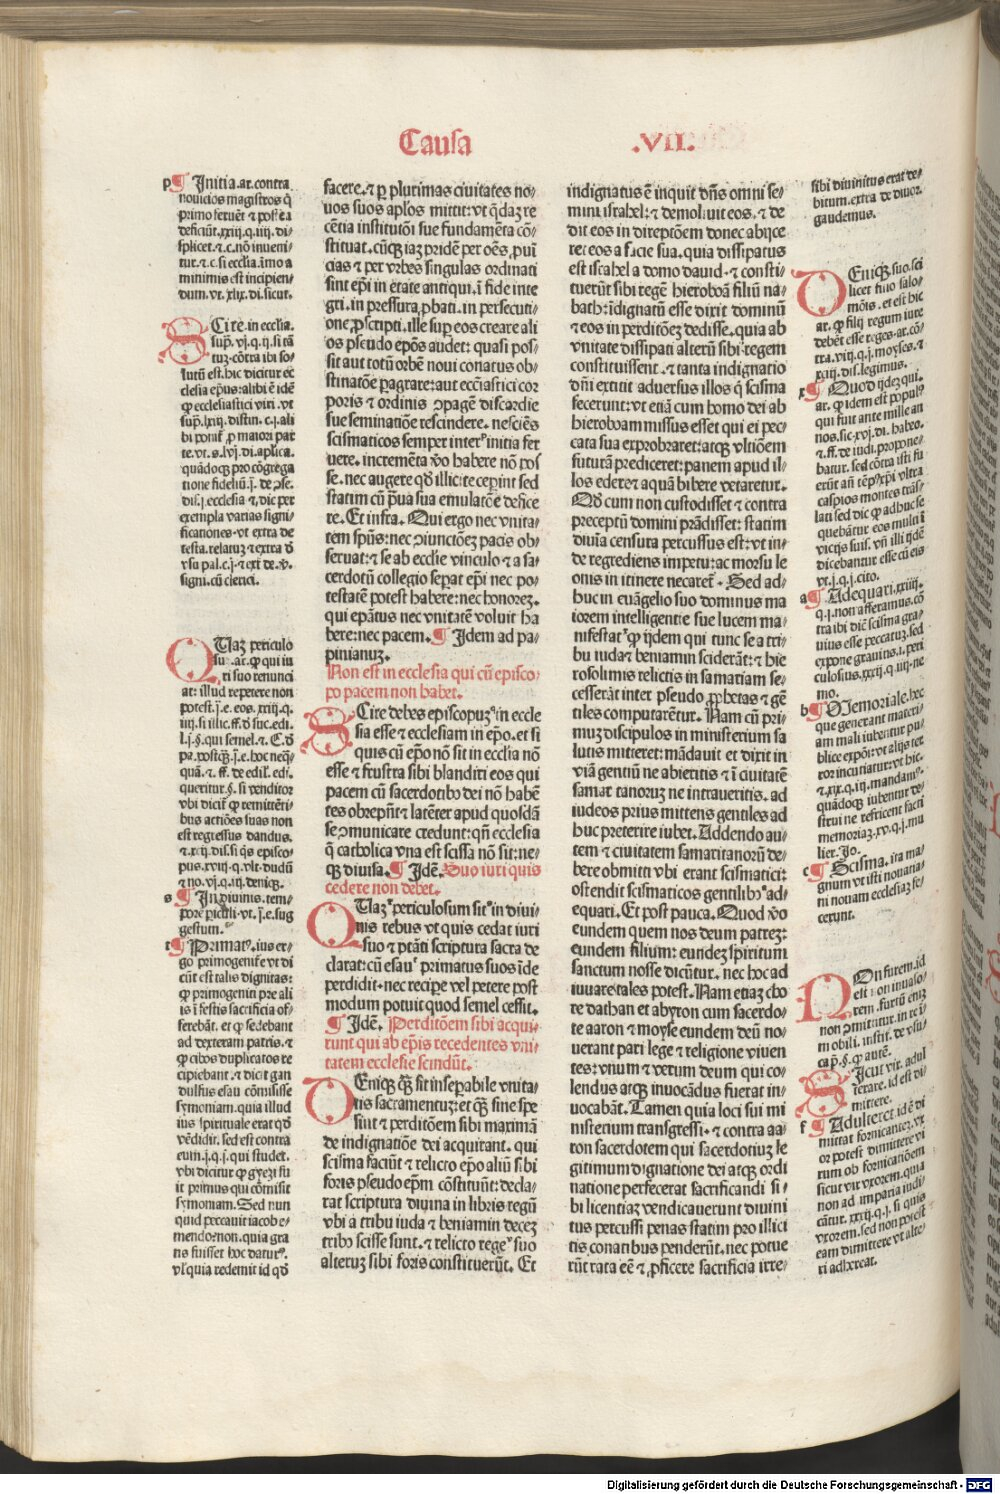 Causa
.VII.
p ¶ Initia.ar.contra
nouicios magistros q̄
primo feruēt ⁊ post ea
deficiūt.xxiij.q.iiij.di-
splicet.⁊.c.nō inueni-
tur.⁊.c.si ecclia.imo a
minimis est incipien-
dum.vt.xlix.di.sicut.
SCire.in ecclia.
sup̄.vj.q.ij.si tā
tuꝫ.cōtra ibi so-
lutū est.hic dicitur ec
clesia ep̄us:alibi ē idē
ꝙ ecclesiastici viri.vt
sup̄.lxiij.distin.c.j.ali
bi ponit᷑ ꝓ maiori par
te.vt.s.lvj.di.apl̄ica.
quādoqꝫ pro cōgrega
tione fideliū.j.de ꝯse.
dis.j.ecclesia ⁊ dic per
exempla varias signi-
ficationes.vt extra de
testa.relatuꝫ.⁊ extra ð
vsu pal.c.j.⁊ ext de.v̄.
signi.cū clerici.
QUaꝫ periculo
sū.ar.ꝙ qui iu
ri suo renunci
at: illud repetere non
potest.j.e.eos.xxiij.q.
iiij.si illic.ff.ð suc.edi.
l.j.§.qui semel.⁊.C.ð
pa.postq̄ꝫ.j.e.hoc neqꝫ
quā.⁊.ff.de edil.edi.
queritur.§.si venditor
vbi dicit᷑ ꝙ remittēti-
bus actiōes suas non
est regressus dandus.
⁊.xij.dis.si q̄s episco-
pus.xviij.q.vlt.dudū
⁊ no.vj.q.iij.deniqꝫ.
s ¶ In diuinis.tem-
pore piculi.vt.j.e.sug
gestum.
t ¶ Primatꝰ.ius er-
go primogenit᷑e vt di
cūt est talis dignitas:
ꝙ primogeniti pre ali
is ī festis sacrificia of-
ferebāt.et ꝙ sedebant
ad dexteram patris.⁊
ꝙ cibos duplicatos re
cipiebant.⁊ dicit gan
dulfus esau cōmisisse
symoniam.quia illud
ius spirituale erat qð
vēdidit.sed est contra
eum.j.q.j.qui studet.
vbi dicitur ꝙ gyezi fu
it primus qui cōmisit
symoniam.Sed nun
quid peccauit iacob e-
mendo:non.quia gra
tis fuisset hoc daturꝰ.
vl̓ quia redemit id qð
facere.⁊ ꝑ plurimas ciuitates no-
uos suos apl̓os mittit:vt q̄daꝫ re
cētia institutiōi sue fundamēta cō-
stituat.cūqꝫ iaꝫ pridē per oēs.ꝓuī
cias ⁊ per vrbes singulas ordinati
sint ep̄i in etate antiqui.ī fide inte
gri.in pressura ꝓbati.in persecuti-
one ꝓscripti.ille sup̄ eos creare ali
os pseudo ep̄os audet: quasi pos-
sit aut totū orbē noui conatus ob-
stinatōe ꝑagrate:aut ecc̄iastici cor
poris ⁊ ordinis ꝯpagē discordie
sue seminatiōe rescindere. nesciēs
scismaticos semper inter᷑ initia fer
uere. incremēta v̄o habere nō pos
se.nec augere qð illicite ceperint sed
statim cū p̄ua sua emulatiōe defice
re.Et infra.Qui ergo nec vnita-
tem sp̄us:nec ꝯiunctiōeꝫ pacis ob-
seruat:⁊ se ab ecclie vinculo ⁊ a sa-
cerdotū collegio sep̄at ep̄i nec po-
testatē potest habere:nec honoreꝫ.
qui ep̄atus nec vnitatē voluit ha
bere:nec pacem.¶ Idem ad pa-
pinianuꝫ.
Non est in ecclesia qui cū episco-
po pacem non habet.
SCire debes episcopuꝫ in eccle
sia esse ⁊ ecclesiam in ep̄o.et si
quis cū ep̄o nō sit in ecclia nō
esse ⁊ frustra sibi blandiri eos qui
pacem cū sacerdotibꝰ dei nō habē
tes obrepūt ⁊ latēter apud quosdā
se ꝯmunicare credunt:qn̄ ecclesia
q̄ catholica vna est scissa nō sit:ne-
qꝫ diuisa.¶ Idē.Suo iuri quis
cedere non debet.
QUaꝫ periculosum sit in diui-
nis rebus vt quis cedat iuri
suo ⁊ ptāti scriptura sacra de
clarat:cū esau primatus suos īde
perdidit.nec recipe vel petere post
modum potuit quod semel cessit.
¶ Idē. Perditōem sibi acqui-
runt qui ab ep̄is recedentes vni-
tatem ecclesie scindūt.
DEniqꝫ q̄ꝫ sit insep̄abile vnita-
tis sacramentuꝫ:et q̄ꝫ sine spe
sint ⁊ perditiōem sibi maximā
de indignatiōe dei acquirant. qui
scisma faciūt ⁊ relicto ep̄o aliū sibi
foris pseudo ep̄m cōstituūt:decla-
rat scriptura diuina in libris regū
vbi a tribu iuda ⁊ beniamin deceꝫ
tribꝰ scisse sunt.⁊ relicto rege suo
alteruꝫ sibi foris constituerūt. Et
indignatus ē inquit dn̄s omni se-
mini israhel:⁊ demoliuit eos.⁊ de
dit eos in direptōem donec abijce
ret eos a facie sua.quia dissipatus
est israhel a domo dauid.⁊ consti-
tuerūt sibi regē hieroboā filiū na-
bath:īdignatū esse dixit dominū
⁊ eos in perditōeꝫ dedisse.quia ab
vnitate dissipati alterū sibi regem
constituissent.⁊ tanta indignatio
dn̄i extitit aduersus illos q̄ scisma
fecerunt:vt etiā cum homo dei ab
hieroboam missus esset qui ei pec-
cata sua exprobraret:atqꝫ vltiōem
futurā prediceret:panem apud il-
los edere ⁊ aquā bibere vetaretur.
Qð cum non custodisset ⁊ contra
preceptū domini prādisset: statim
diuīa censura percussus est:vt in-
de regrediens impetu:ac morsu le
onis in itinere necaret᷑. Sed ad-
huc in euāgelio suo dominus ma
iorem intelligentie sue lucem ma-
nifestat ꝙ ijdem qui tunc se a tri-
bu iuda ⁊ beniamin sciderāt:⁊ hie
rosolimis relictis in samariam se-
cesserāt inter pseudo ꝓphetas ⁊ gē
tiles computarētur.Nam cū pri-
muꝫ discipulos in ministerium sa
lutis mitteret:mādauit et dixit in
viā gentiū ne abieritis ⁊ ī ciuitatē
samaritanoruꝫ ne intraueritis. ad
iudeos prius mittens gentiles ad
huc preterire iubet.Addendo au-
tem ⁊ ciuitatem samaritanorū de-
bere obmitti vbi erant scismatici:
ostendit scismaticos gentilibꝰ ad-
equari.Et post pauca.Quod v̄o
eundem quem nos deum patreꝫ:
eundem filium:eundeꝫ spiritum
sanctum nosse dicūtur. nec hoc ad
iuuare tales potest.Nam etiaꝫ cho
re dathan et abyron cum sacerdo-
te aaron ⁊ moyse eundem deū no-
uerant pari lege ⁊ religione viuen
tes:vnum ⁊ verum deum qui co-
lendus atqꝫ inuocādus fuerat in-
uocabāt.Tamen quia loci sui mi
nisterium transgressi.⁊ contra aa-
ron sacerdotem qui sacerdotiuꝫ le
gitimum dignatione dei atqꝫ ordi
natione perfecerat sacrificandi si-
bi licentiaꝫ vendicauerunt diuini
tus percussi penas statim pro illici
tis conatibus penderūt.nec potue
rūt rata eē ⁊ ꝓficere sacrificia irre-
sibi diuinitus erat de-
bitum.extra de diuor.
gaudemus.
DEniqꝫ.suo.sci
licet filio salo-
mōis. et est hic
ar. ꝙ filij regum iure
debēt esse reges.ar.cō-
tra.viij.q.j.moyses.⁊
xxij.dis.legimus.
x ¶ Quod ijdeꝫ qui.
ar. ꝙ idem est populꝰ
qui fuit ante mille an
nos.sic.xvj.di.habeo.
⁊.ff.de iudi.propone-
batur.sed cōtra isti fu
erūt añ tēpꝰ xp̄i vltra
caspios montes trās-
lati sed dic ꝙ adhuc se
quebātur eos multi ī
vicijs suis. vñ illi ijdē
dicebantur esse cū eis
vt.j.q.j.cito.
a ¶ Adequari.xxiiij.
q.j.non afferamus.cō
tra ibi diē scisma gra-
uius esse peccatuꝫ.sed
expone grauius.i.peri
culosius.xxij.q.iiij.ne-
mo.
b ¶ Memoriale.hec
que generant materi-
am mali iubentur pu-
blice expōi:vt alijs ter
ror incutiatur:vt hic.
⁊.xix.q.iij.mandamꝰ.
quādoqꝫ iubentur de-
strui ne refricent facti
memoriaꝫ.xv.q.j.mu
lier.Io.
c ¶ Scisma.ita ma-
gnum vt isti nouatia-
ni nouam ecclesiaꝫ fe-
cerunt.
NOn furem.id
est non inuaso-
rem.furtū eniꝫ
non ꝯmittitur.in re ī
mobili.instit.de vsu-
cap̄.§.ꝙ autē.
SIcut vir.adul
terare.id est di-
mittere.
f ¶ Adulteret idē di
mittat fornicariā.vx
or potest dimittere vi
rum ob fornicatiōem
sicut vir vxorem.quia
non ad imparia iudi-
cātur.xxxij.q.j.si quis
vxorem.sed non potest
eam dimittere vt alte-
ri adhereat.
Digitalisierung gefördert durch die Deutsche Forschungsgemeinschaft - DFG